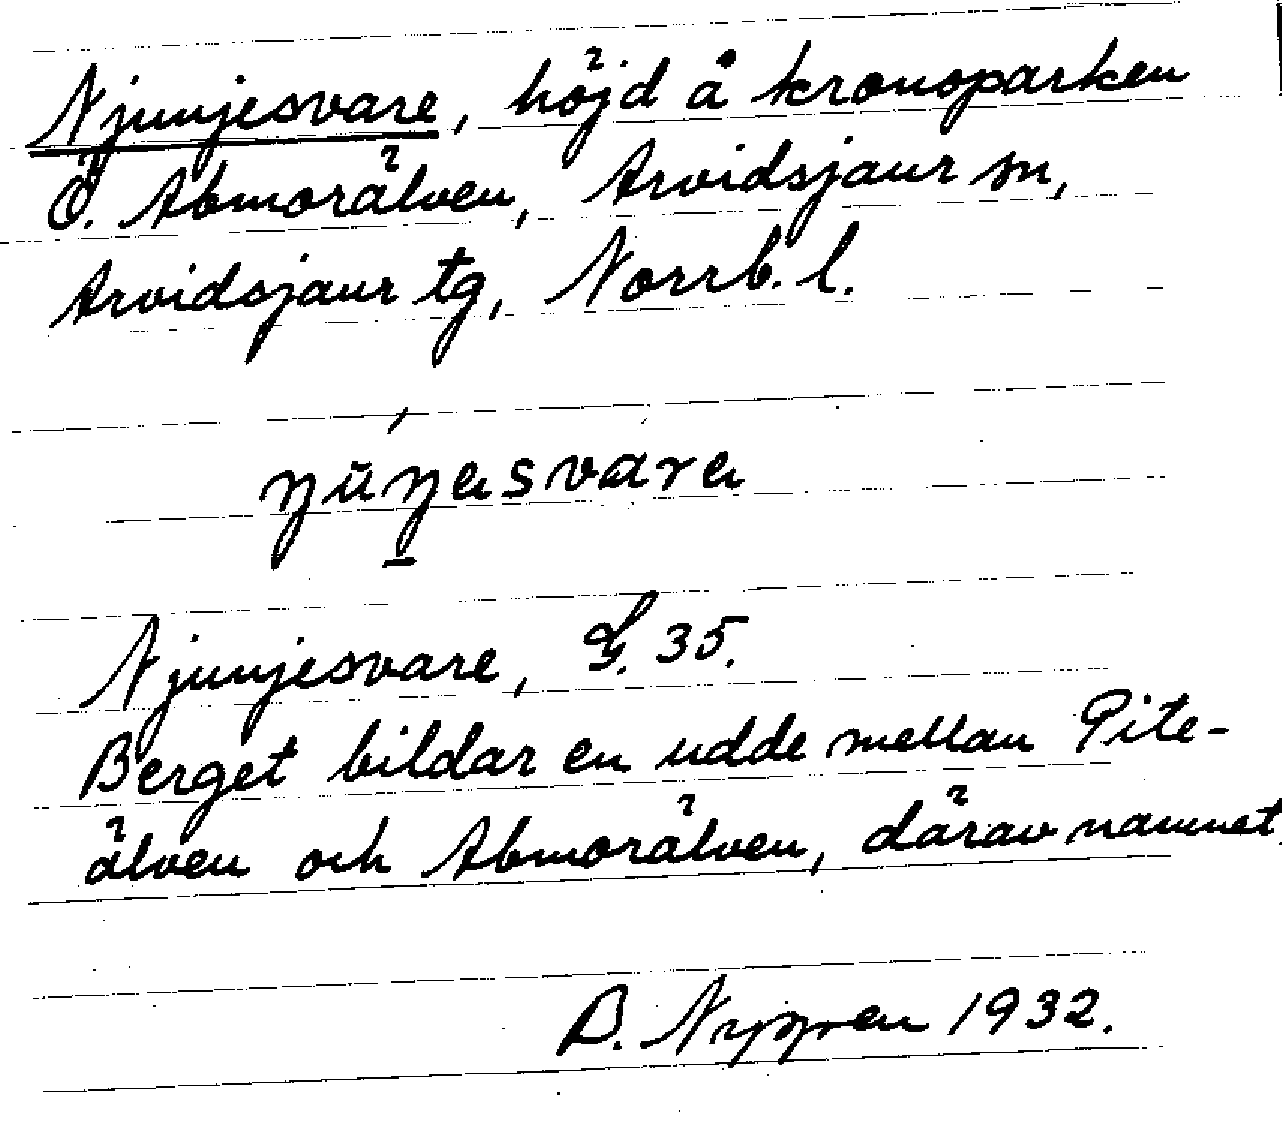 Njunjesvare, höjd å kronoparken
Ö. Abmorälven, Arvidsjaur sn,
Arvidsjaur tg, Norrb. l.
Njunjesvare, 35.
Berget bildar en udde mellan Pite-
älven och Abmorälven, därav namnet.
B. Nygren 1932.